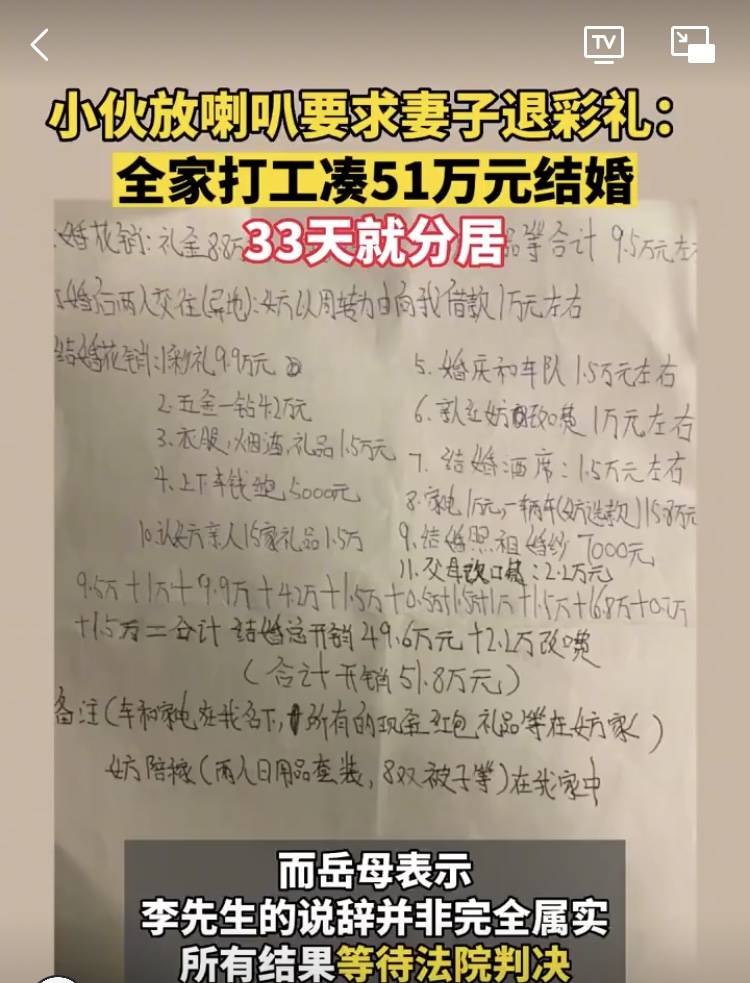 TV
小伙放喇叭要求妻子退彩礼：
全家打工凑51万元结婚
33天就分居
婚花销：礼金8.8万 品等合计 9.5万元左右
婚后两人交往(异地)：女方以周转为由向我借款1万元左右
结婚花销：1彩礼9.9万元
2. 五金一钻4.2万元
3. 衣服，烟酒，礼品1.5万元
4. 上下车钱包5000元
10. 认女方亲人15家礼品1.5万
5. 婚庆和车队 1.5万元左右
6. 亲在女方改口费 1万元左右
7. 结婚酒席：1.5万元左右
8. 家电1万元，一辆车(女方选款)15.8万元
9. 结婚照租婚纱 7000元
11. 父母改口费：2.2万元
9.5万+1万+9.9万+4.2万+1.5万+0.5万+1.5万+1万+1.5万+16.8万+0.7万
+1.5万=合计 结婚总开销49.6万元+2.2万改口费
(合计开销51.8万元)
备注(车和家电在我名下，所有的现金红包礼品等在女方家)
女方陪嫁(两人日用品套装，8双被子等)在我家中
而岳母表示
李先生的说辞并非完全属实
所有结果等待法院判决